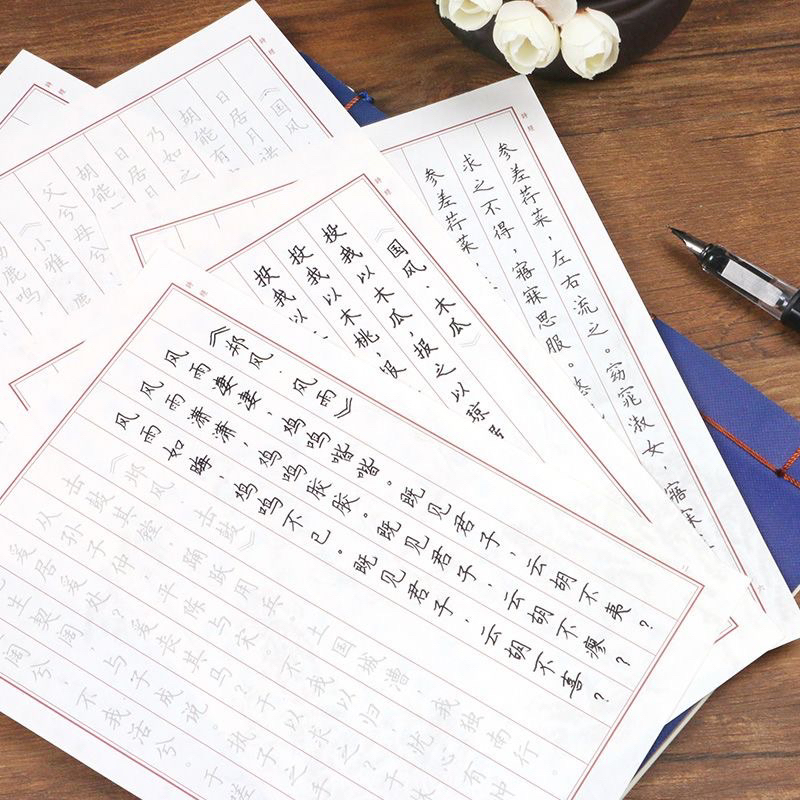 诗经
《郑风·风雨》
风雨凄凄,鸡鸣喈喈。既见君子,云胡不夷?
风雨潇潇,鸡鸣胶胶。既见君子,云胡不瘳?
风雨如晦,鸡鸣不已。既见君子,云胡不喜?
《邶风·击鼓》
击鼓其镗,踊跃用兵。土国城漕,我独南行。
从孙子仲,平陈与宋。不我以归,忧心有忡
爰居爰处?爰丧其马?于以求之?于林
生契阔,与子成说。执子之手
阔兮,不我活兮。于嗟
诗经
《国风·木瓜》
投我以木瓜,报之以琼
投我以木桃,
投我以
诗经
参差荇菜,左右流之。窈窕淑女,寤寐
求之不得,寤寐思服。悠
参差荇菜,
诗经
《国风
日居月诸
胡能有
乃如之
日居
胡能
父兮母兮
《小雅
鹿鸣,